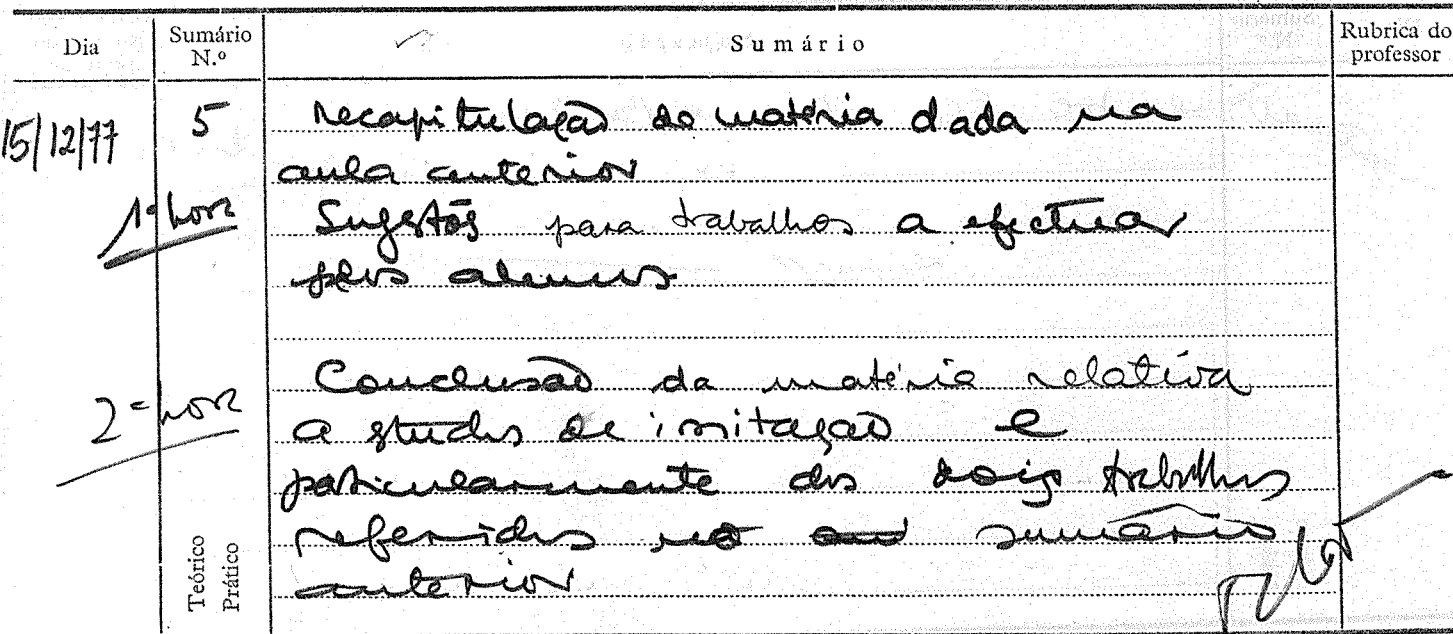 Dia Sumário N.º Sumário Rubrica do professor
15/12/77 5 Recapitulação da matéria dada na
aula anterior
1ª hora Sugestões para trabalhos a efectuar
pelos alunos
2ª hora Conclusão da matéria relativa
a estudos de irritação e
particularmente dos dois trabalhos
referidos no sumário
anterior
Teórico
Prático